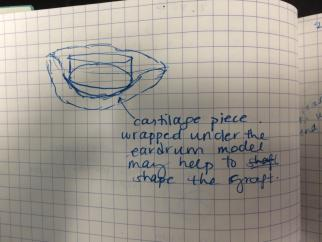 cartilage piece
wrapped under the
eardrum model
may help to shaft
shape the graft.